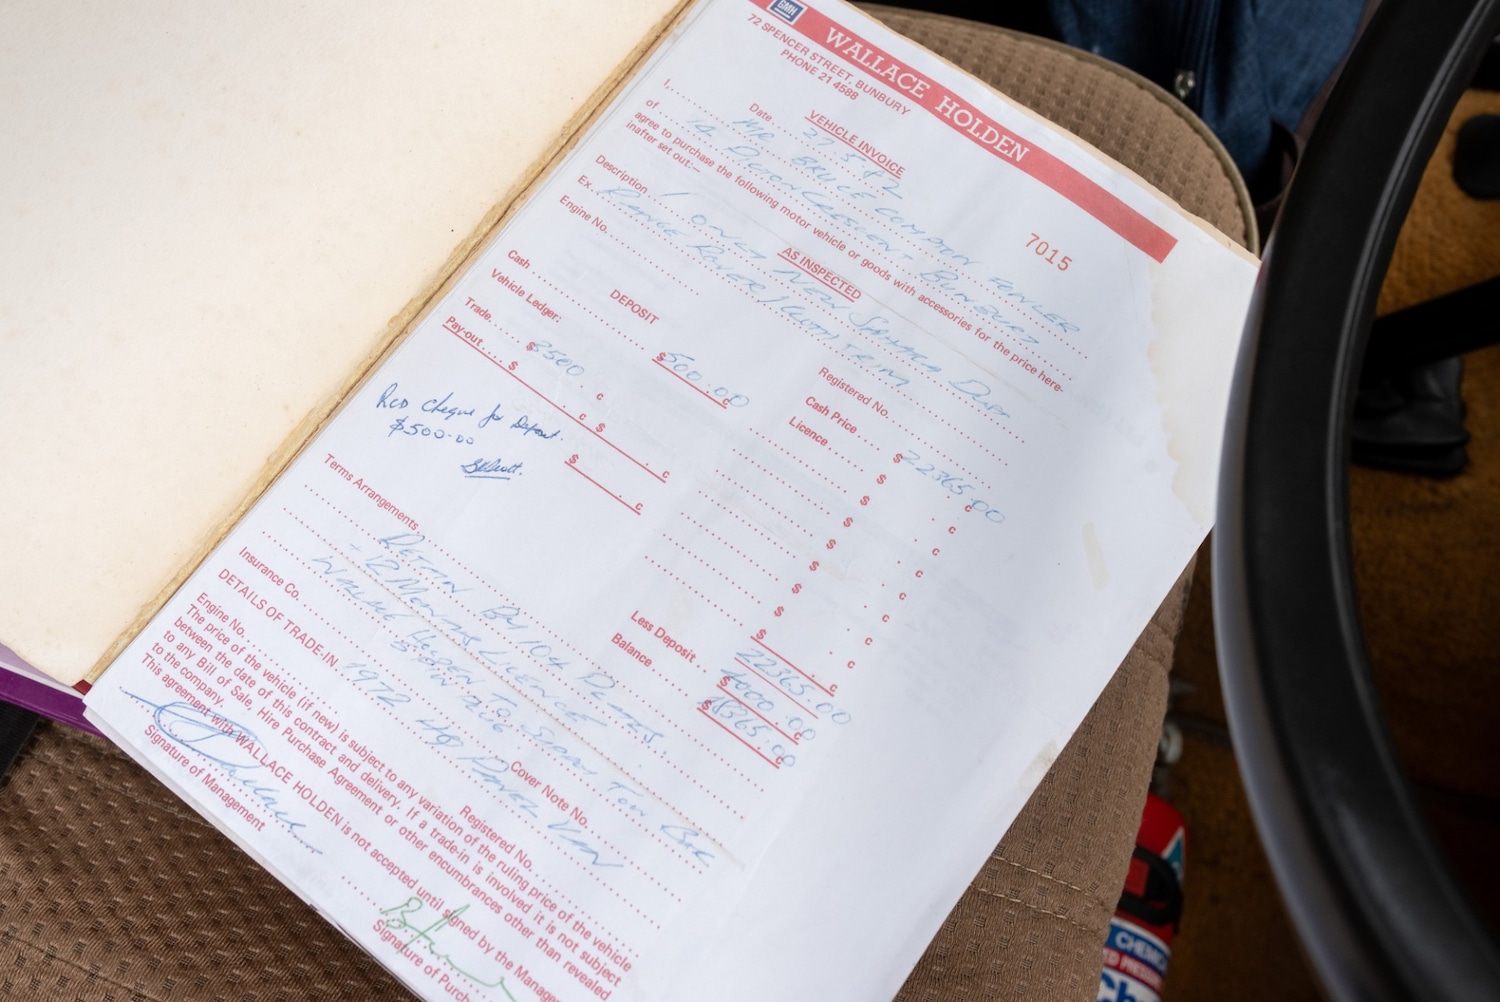 GMH
WALLACE HOLDEN
72 SPENCER STREET, BUNBURY
PHONE 21 4588
VEHICLE INVOICE
7015
Date 27.5.82
I, MR BRUCE COMPTON FOWLER
of CRESCENT BUNBURY
agree to purchase the following motor vehicle or goods with accessories for the price here-
inafter set out:—
AS INSPECTED
Description 1 ONLY NEW SAHARA DUST
Ex. RANGE ROVER / TRIM
Engine No.
Registered No.
DEPOSIT
Cash $500.00 c
Vehicle Ledger:
Trade $3500 c
Pay-out $ c $ c
$ c
Cash Price $22365 c 00
Licence $ c
$ c
$ c
$ c
$ c
$ c
$22365.00 c
Less Deposit $4000.00 c
Balance $18365.00 c
RCD Cheque for Deposit.
$500.00
Terms Arrangements
12 MONTHS LICENCE
WALLACE HOLDEN TO SUPPLY TOW BAR
Insurance Co. Cover Note No.
DETAILS OF TRADE-IN 1972 HQ PANEL VAN
Engine No. Registered No.
The price of the vehicle (if new) is subject to any variation of the ruling price of the vehicle
between the date of this contract and delivery. If a trade-in is involved it is not subject
to any Bill of Sale, Hire Purchase Agreement or other encumbrances other than revealed
to the company.
This agreement with WALLACE HOLDEN is not accepted until signed by the Manage
Signature of Management
Signature of Purch
CHEMI
D PRESS
Ch